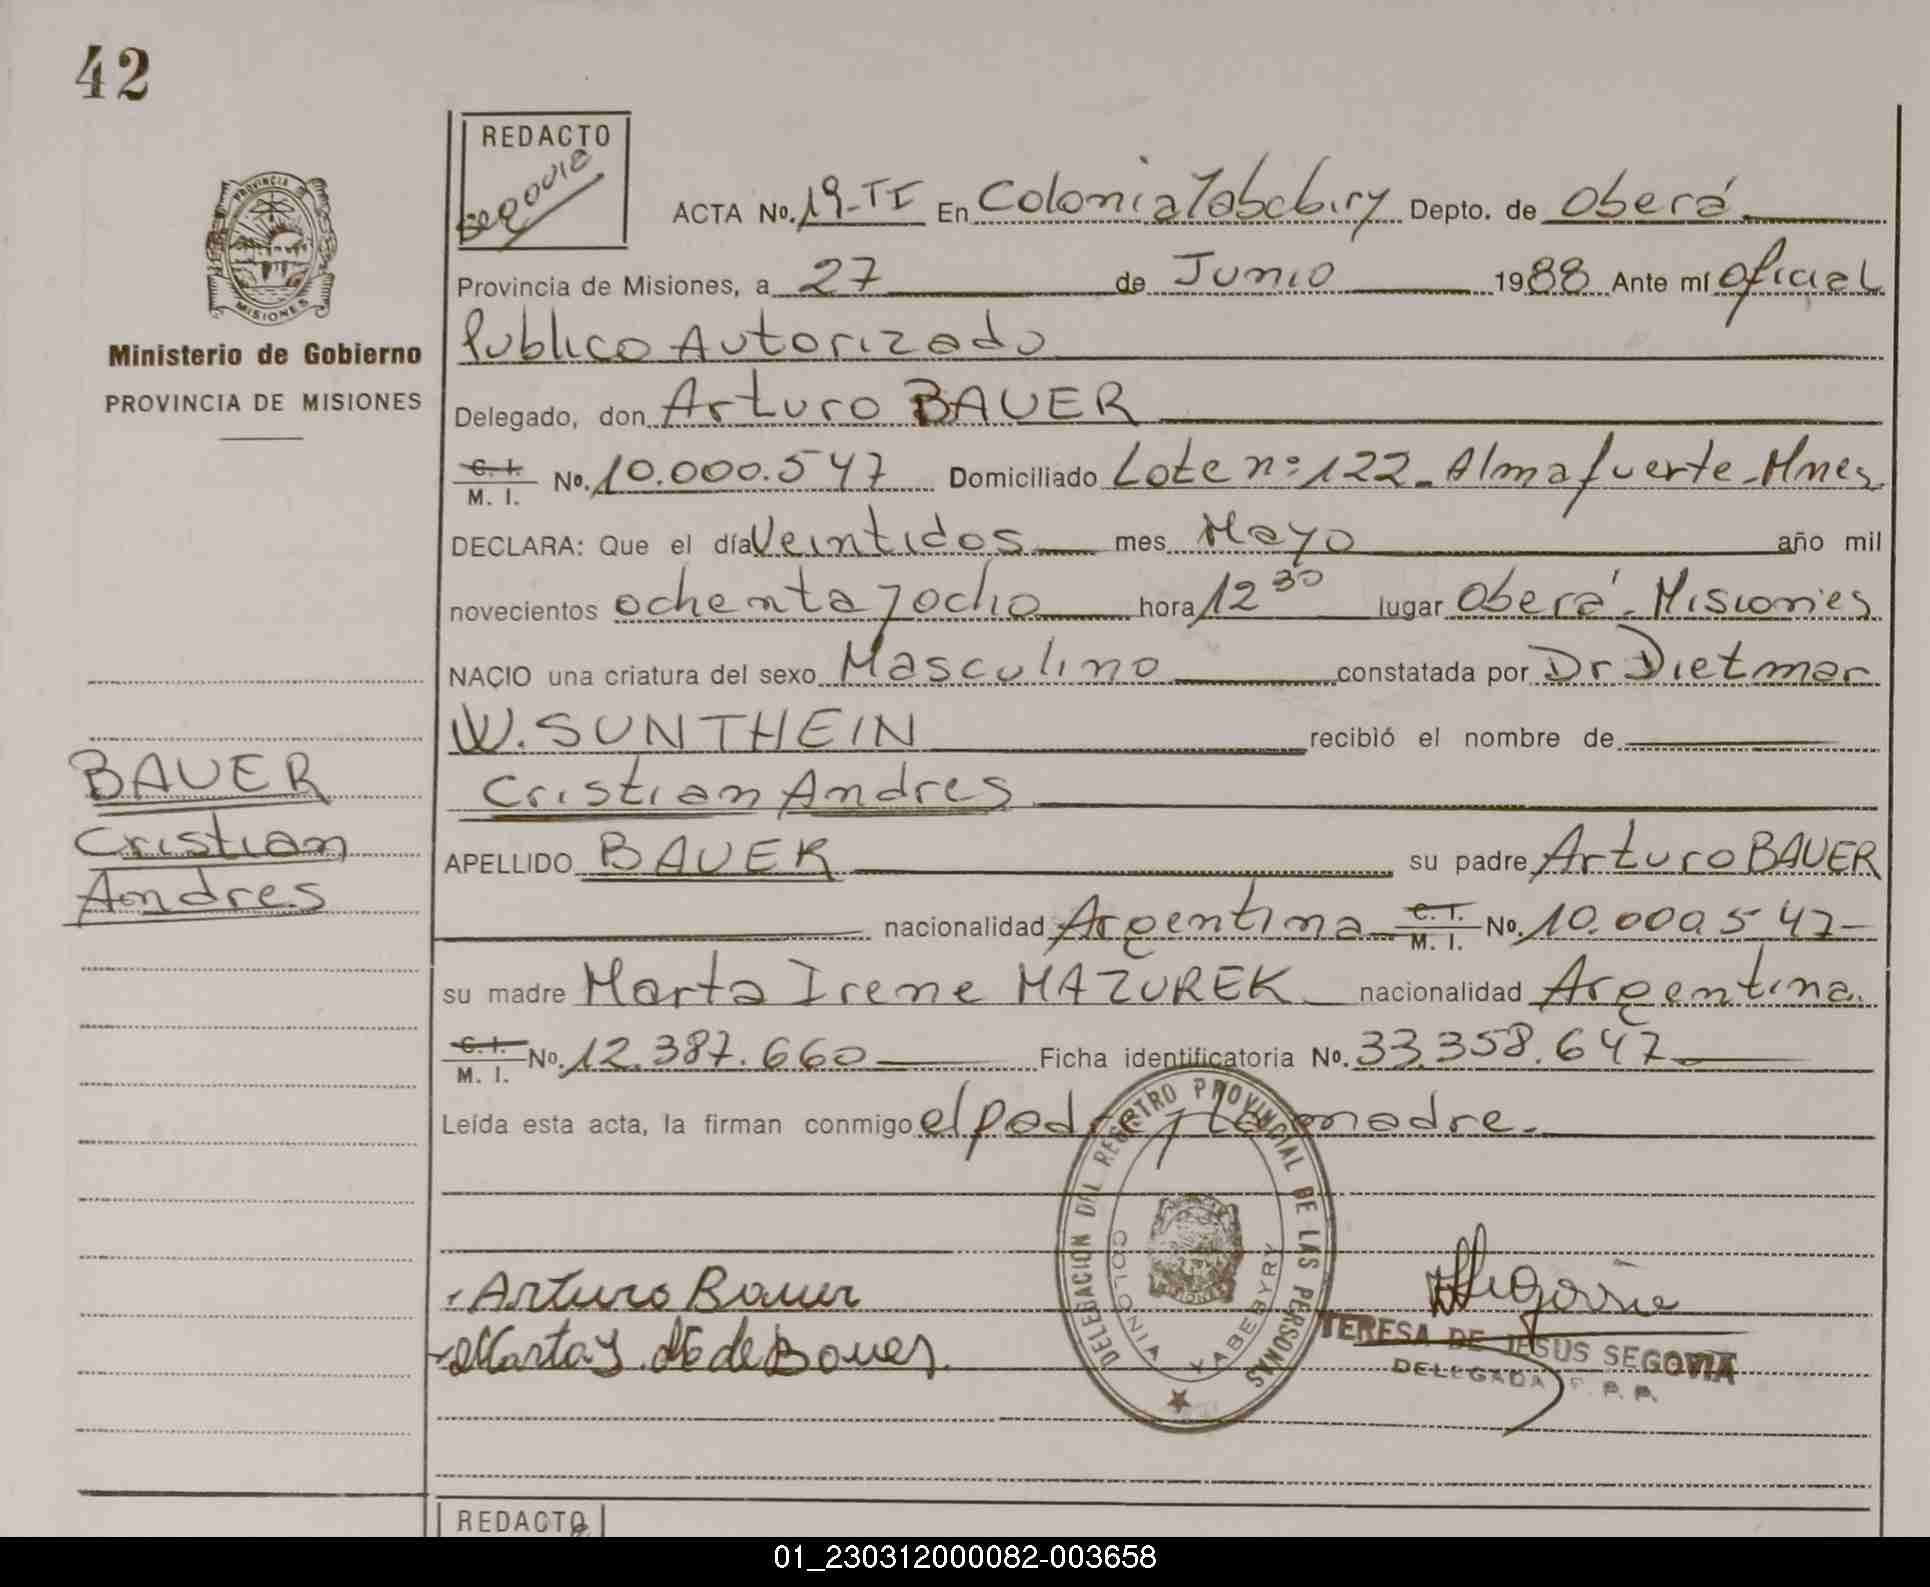 42
REDACTO
Segovia
PROVINCIA
MISIONES
Ministerio de Gobierno
PROVINCIA DE MISIONES
ACTA No. 19-TI En Colonia Yabebiry Depto. de Oberá
Provincia de Misiones, a 27 de Junio 1988 Ante mí Oficial
Publico Autorizado
Delegado, don Arturo BAUER
C. I. M. I. No. 10.000.547 Domiciliado Lote nº 122 - Almafuerte - Mnes
DECLARA: Que el día Veintidos mes Mayo año mil
novecientos ochenta y ocho hora 12 30 lugar Oberá - Misiones
NACIO una criatura del sexo Masculino constatada por Dr Dietmar
W. SUNTHEIN recibió el nombre de
Cristian Andres
BAUER
Cristian
Andres
APELLIDO BAUER su padre Arturo BAUER
nacionalidad Argentina C. I. M. I. No. 10.000.547-
su madre Marta Irene MAZUREK nacionalidad Argentina.
C. I. M. I. No. 12.387.660 Ficha identificatoria No. 33.358.647
Leída esta acta, la firman conmigo el padre y la madre.
DELEGACION DEL REGISTRO PROVINCIAL DE LAS PERSONAS
COLONIA YABEBYRY
Arturo Bauer
Marta Y. M de Bauer
Segovia
TERESA DE JESUS SEGOVIA
DELEGADA R. P. P.
REDACTO
01_230312000082-003658